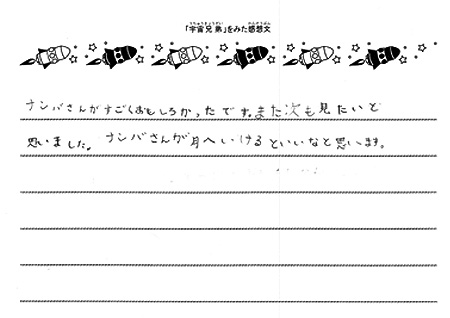 うちゅうきょうだい かんそうぶん
「宇宙兄弟」をみた感想文
ナンバさんがすごくおもしろかったです。また次も見たいと
思いました。ナンバさんが月へいけるといいなと思います。